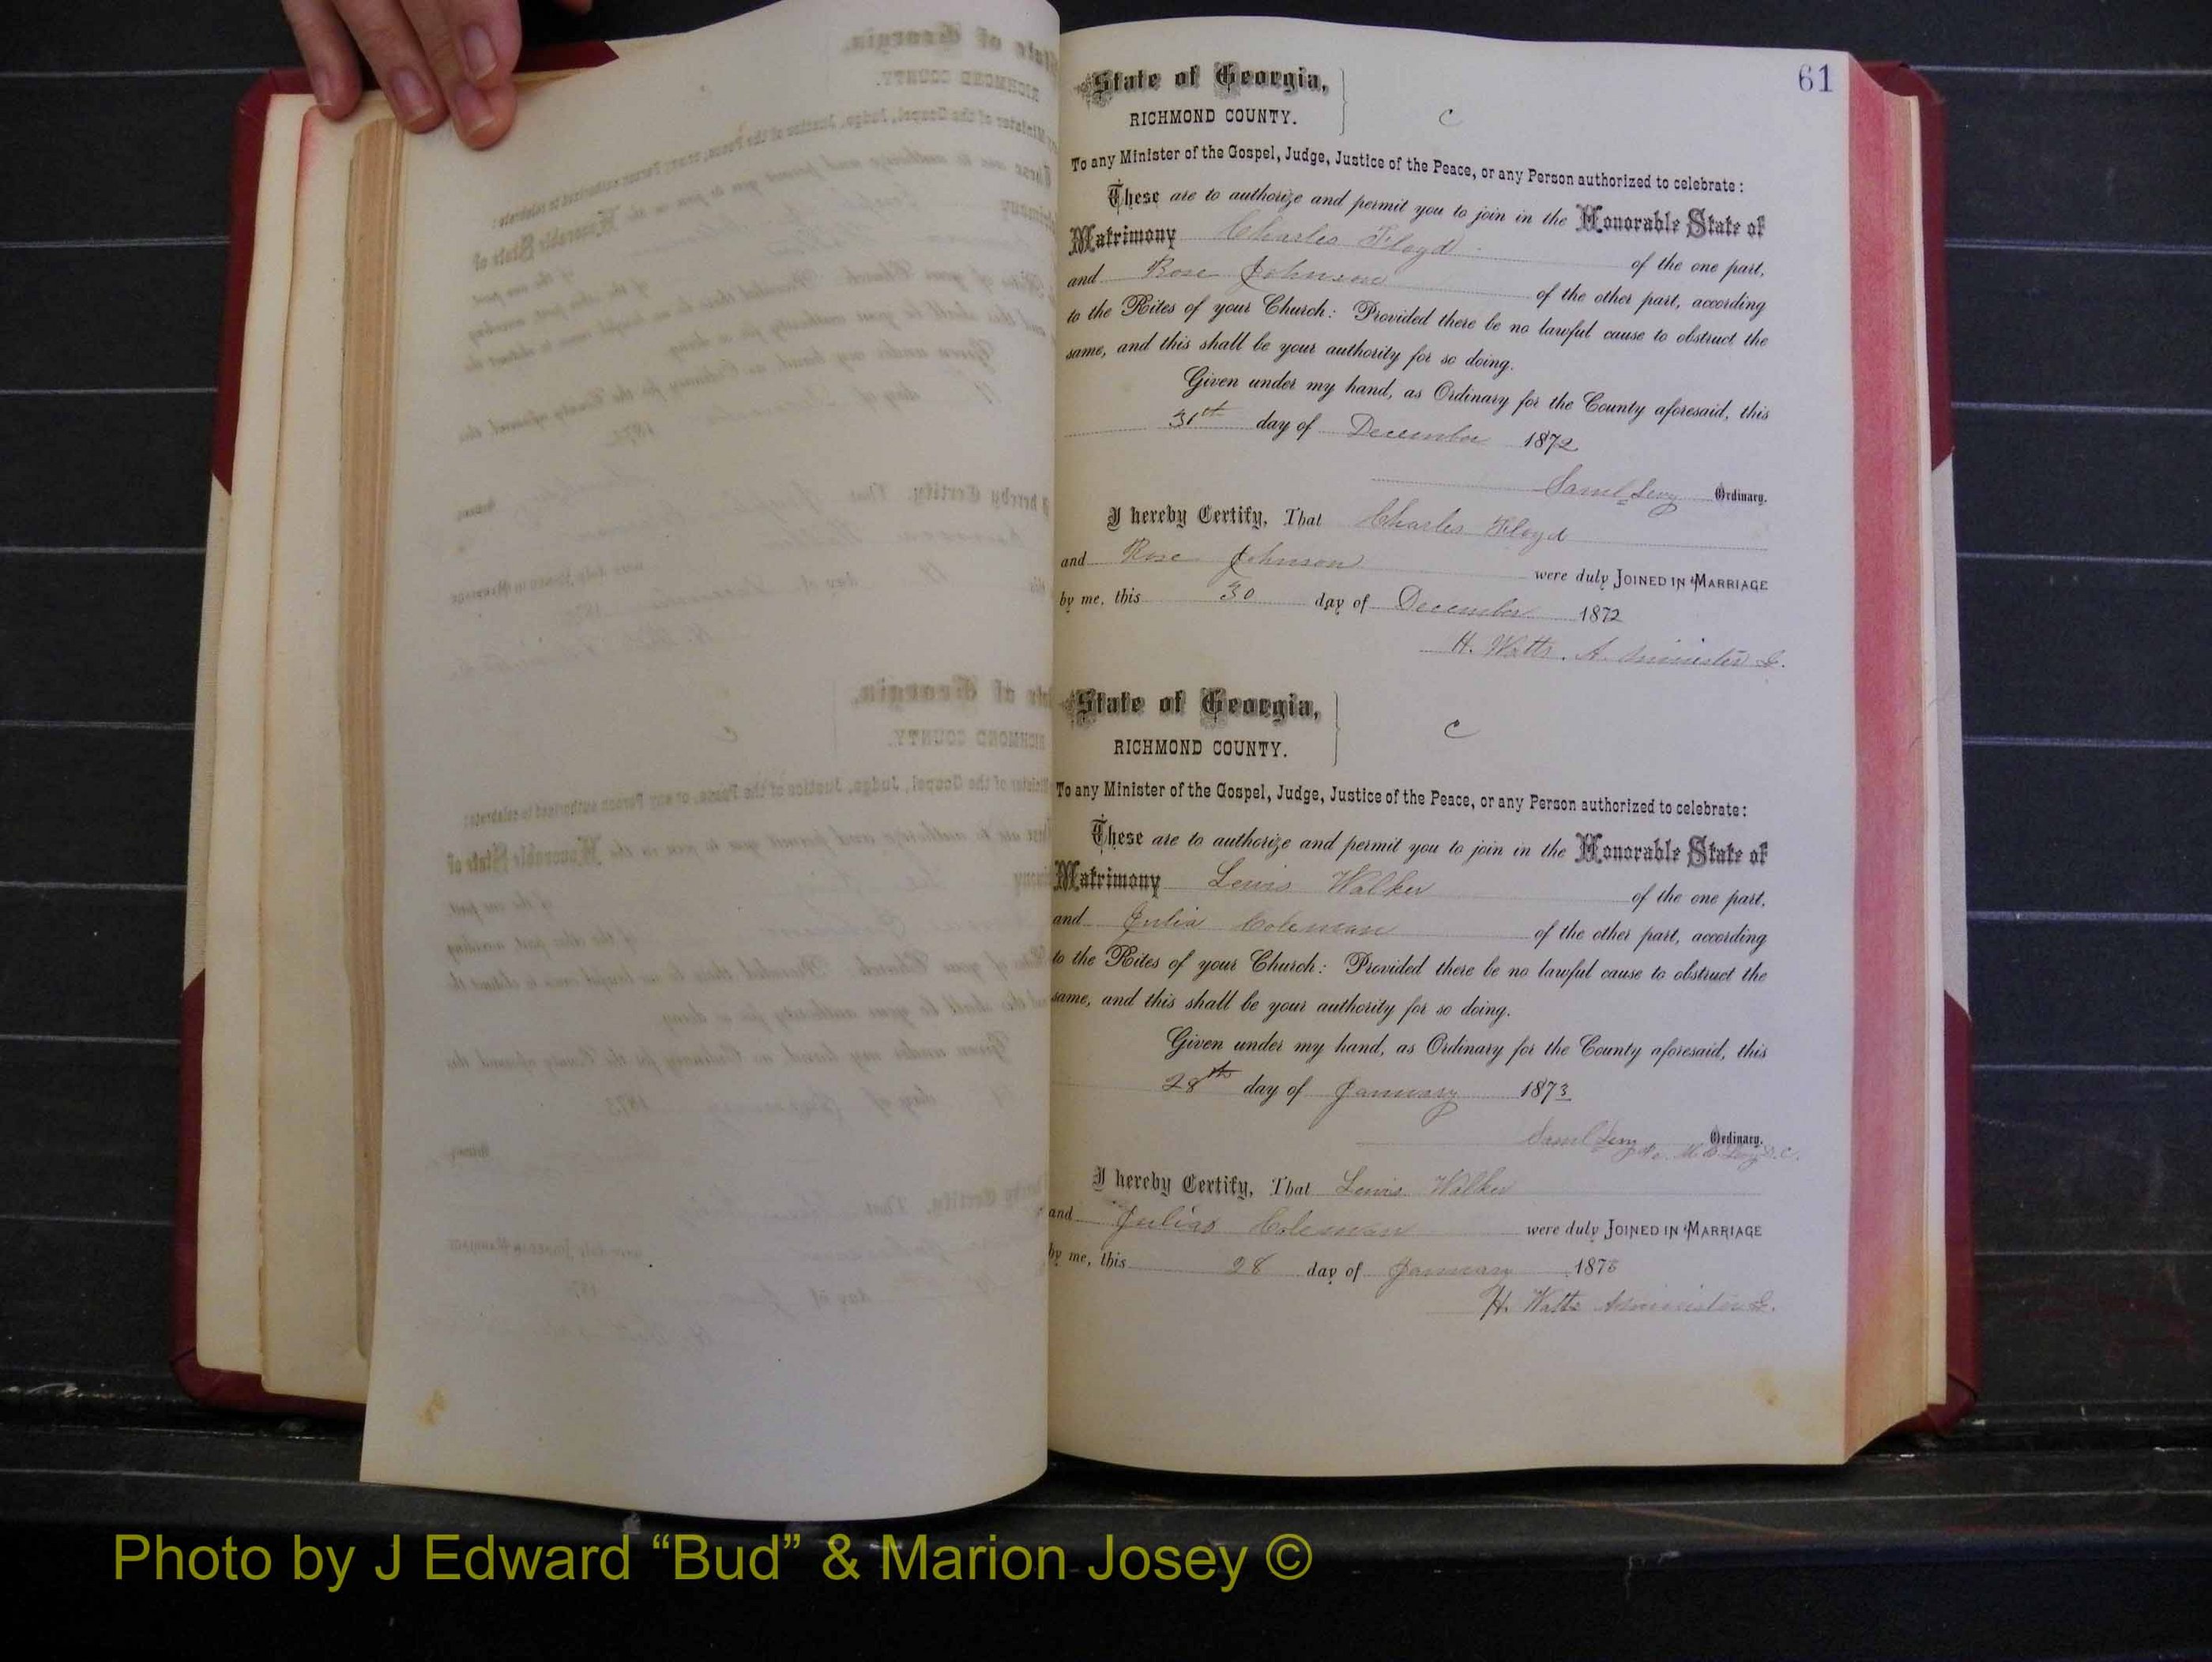 61
State of Georgia,
RICHMOND COUNTY.
C
To any Minister of the Gospel, Judge, Justice of the Peace, or any Person authorized to celebrate:
These are to authorize and permit you to join in the Honorable State of
Matrimony Charles Floyd of the one part,
and Rose Johnson of the other part, according
to the Rites of your Church: Provided there be no lawful cause to obstruct the
same, and this shall be your authority for so doing.
Given under my hand, as Ordinary for the County aforesaid, this
31th day of December 1872
Saml Levy Ordinary.
I hereby Certify, That Charles Floyd
and Rose Johnson were duly JOINED IN MARRIAGE
by me, this 30 day of December 1872
H. Watts. A. Minister G.
State of Georgia,
RICHMOND COUNTY.
C
To any Minister of the Gospel, Judge, Justice of the Peace, or any Person authorized to celebrate:
These are to authorize and permit you to join in the Honorable State of
Matrimony Lewis Walker of the one part,
and Julia Coleman of the other part, according
to the Rites of your Church: Provided there be no lawful cause to obstruct the
same, and this shall be your authority for so doing.
Given under my hand, as Ordinary for the County aforesaid, this
28th day of January 1873
Saml Levy Ordinary.
I hereby Certify, That Lewis Walker
and Julias Coleman were duly JOINED IN MARRIAGE
by me, this 28 day of January 1873
H. Watts Aminister G.
Photo by J Edward “Bud” & Marion Josey ©